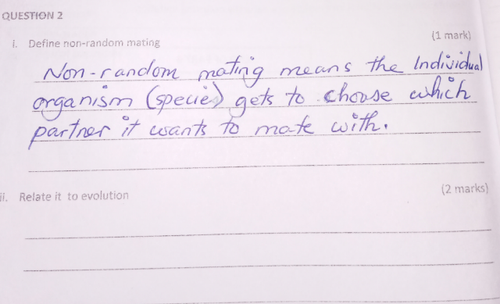 QUESTION 2
(1 mark)
i. Define non-random mating
Non-random mating means the Individual
organism (species) gets to choose which
partner it wants to mate with.
ii. Relate it to evolution
(2 marks)